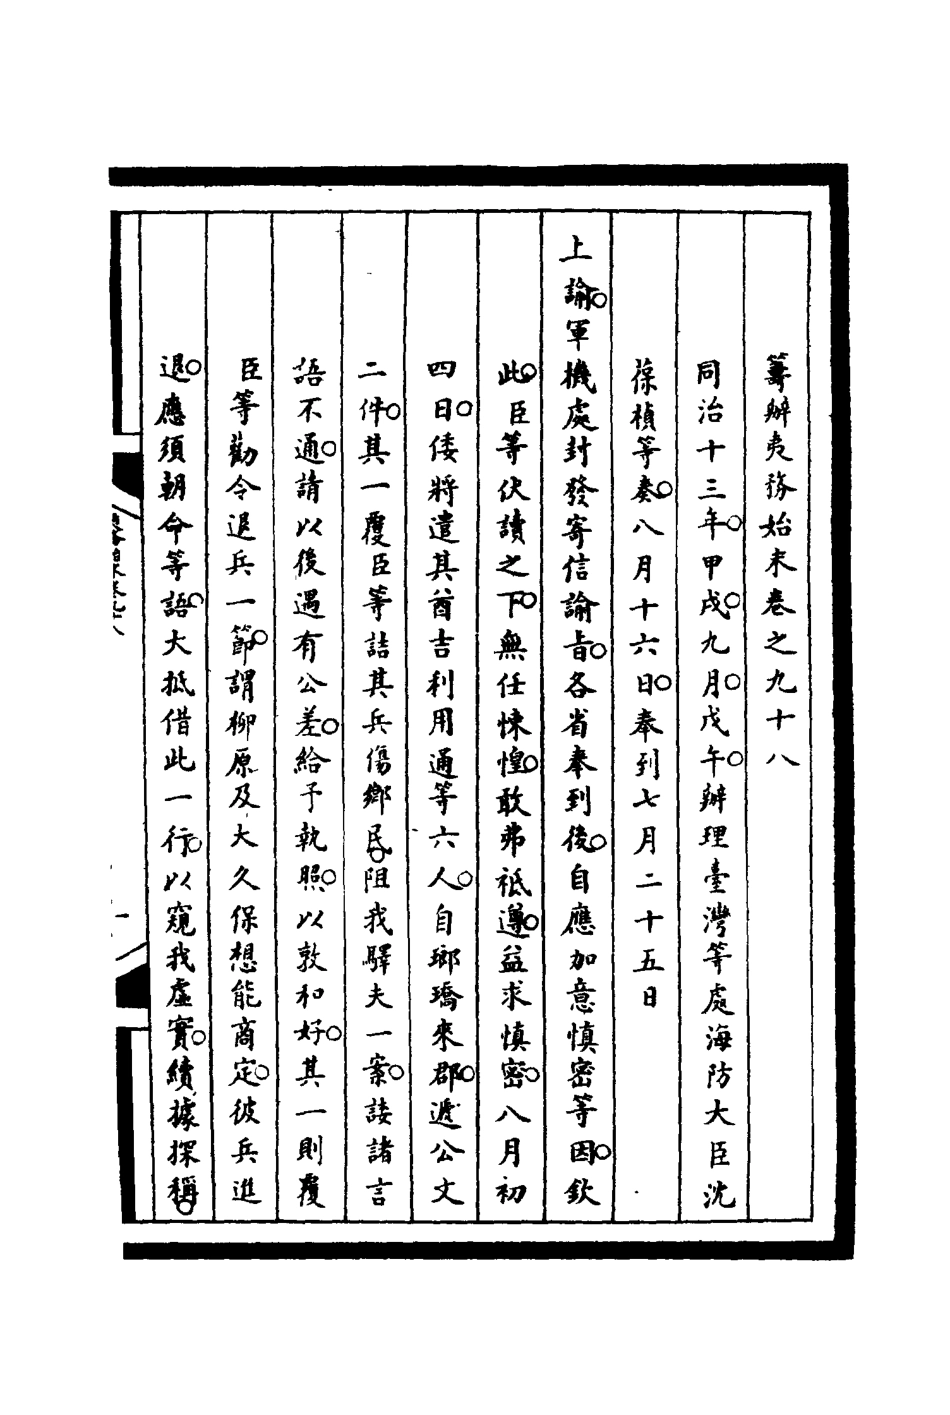 籌辦夷務始末卷之九十八
同治十三年。甲戌。九月。戊午。辦理臺灣等處海防大臣沈
葆楨等奏。八月十六日。奉到七月二十五日
上諭。軍機處封發寄信諭旨。各省奉到後。自應加意慎密等因。欽
此。臣等伏讀之下。無任悚惶。敢弗祗遵。益求慎密。八月初
四日。倭將遣其酋吉利用通等六人。自瑯𤩝來郡。遞公文
二件。其一覆臣等詰其兵傷鄉民。阻我驛夫一案。諉諸言
語不通。請以後遇有公差。給予執照。以敦和好。其一則覆
臣等勸令退兵一節。謂柳原及大久保想能商定。彼兵進
退。應須朝命等語。大抵借此一行。以窺我虛實。續據探稱。